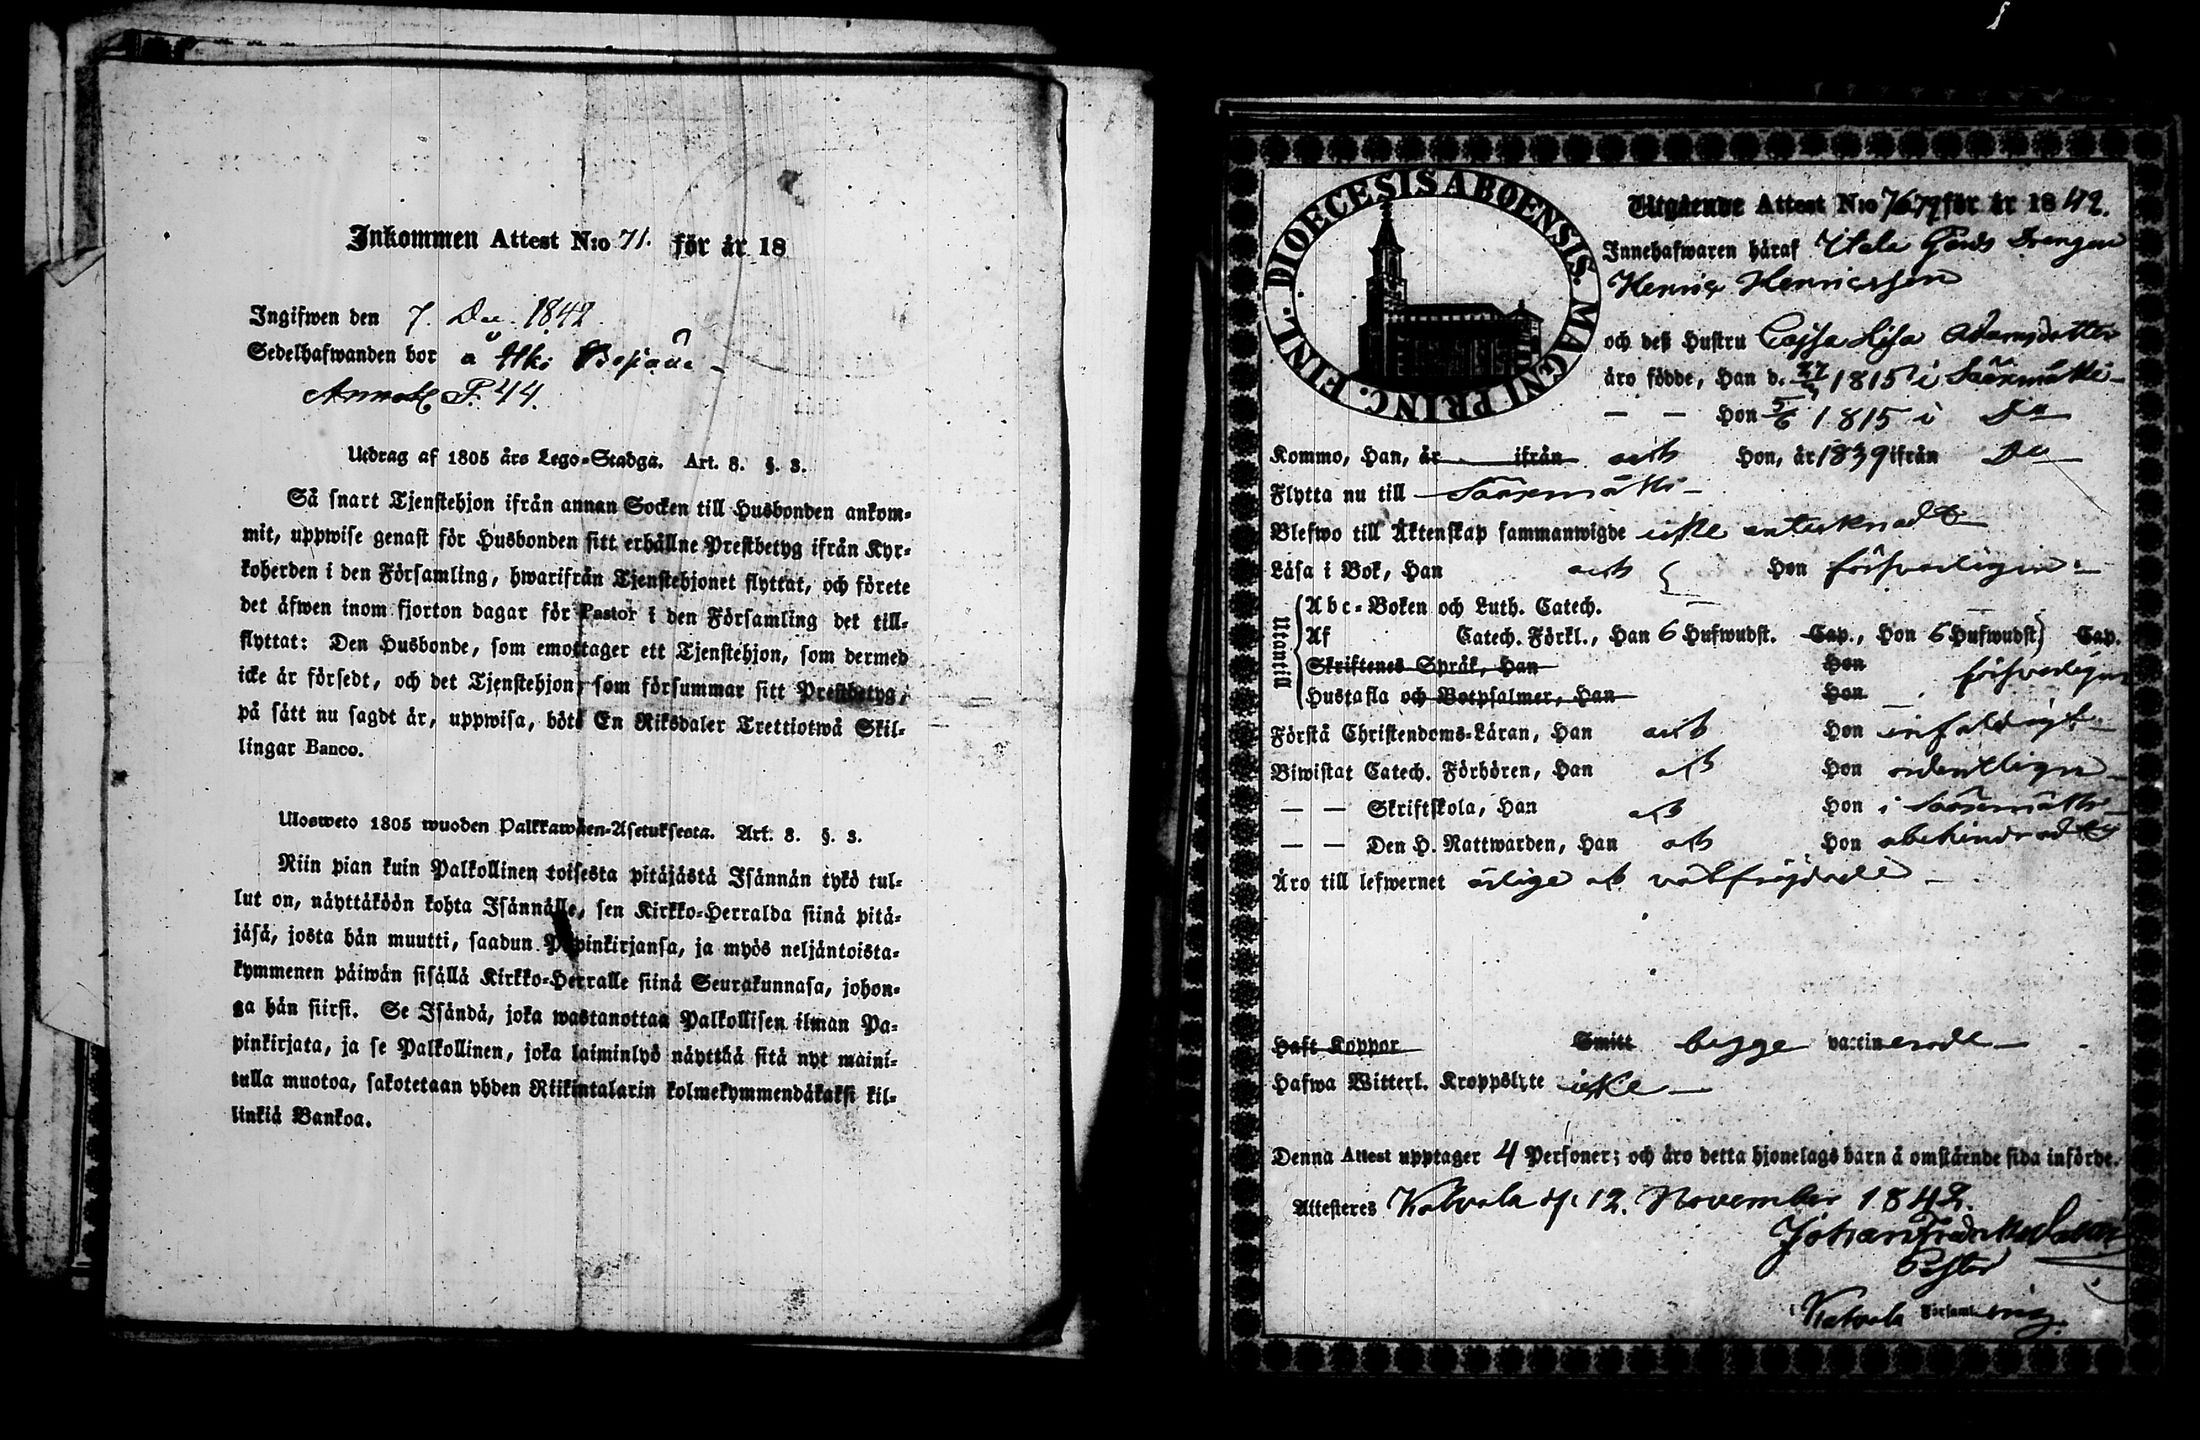 Inkommen Attest N:o 71. för år 18
Ingifwen den 7. Dec. 1842
Sedelhafwanden bor å
Annot. P. 44.
Utdrag af 1805 års Lego-Stadga. Art. 8. §. 3.
Så snart Tjenstehjon ifrån annan Socken till Husbonden ankom-
mit, uppwise genast för Husbonden sitt erhållne Prestbetyg ifrån Kyr-
koherden i den Församling, hwarifrån Tjenstehjonet flyttat, och förete
det äfwen inom fjorton dagar för Pastor i den Församling det till-
flyttat: Den Husbonde, som emottager ett Tjenstehjon, som dermed
icke är försedt, och det Tjenstehjon, som försummar sitt Prestbetyg,
på sätt nu sagdt är, uppwisa, böte En Riksdaler Trettiotwå Skil-
lingar Banco.
Ulosweto 1805 wuoden Palkkawäen-Asetuksesta. Art. 8. §. 3.
Niin pian kuin Palkollinen toisesta pitäjästä Isännän tykö tul-
lut on, näyttäköön kohta Isännälle, sen Kirkko-Herralda siinä pitä-
jäsä, josta hän muutti, saadun Papinkirjansa, ja myös neljäntoista-
kymmenen päiwän sisällä Kirkko-Herralle siinä Seurakunnasa, johon-
ga hän siirsi. Se Isändä, joka wastanottaa Palkollisen ilman Pa-
pinkirjata, ja se Palkollinen, joka laiminlyö näyttää sitä nyt maini-
tulla muotoa, sakotetaan yhden Riikintalarin kolmekymmendäkaksi kil-
linkiä Bankoa.
DIOECESIS ABOENSIS. MAGNI PRINC. FINL.
Utgående Attest N:o för år 1842.
Innehafwaren häraf Itala Gårds Drengen
Henric Henricsson
och deß Hustru Cajsa Lisa Adamsdotter
äro födde, Han d. 1815 i Sääxmäki
— — Hon 5/6 1815 i Do
Kommo, Han, år ifrån och Hon, år 1839 ifrån Do
Flytta nu till Sääxmäki
Blefwo till Äktenskap sammanwigde icke antecknadt
Läsa i Bok, Han och Hon försvarligen
Utantill
Abc-Boken och Luth. Catech.
Af Catech. Förkl., Han 6 Hufwudst. Cap., Hon 6 Hufwudst. Cap.
Skriftenes Språk, Han Hon försvarligen
Hustafla och Botpsalmer, Han Hon
Förstå Christendoms-Läran, Han och Hon enfaldigt
Biwistat Catech. Förhören, Han och Hon ordentligen
— — Skriftskola, Han och Hon i Sääxmäki
— — Den H. Nattwarden, Han och Hon obehindradt
Äro till lefwernet ärlige och välfrejdade
Haft Koppor Smitt begge vaccinerade
Hafwa Witterl. Kroppslyte icke
Denna Attest upptager 4 Personer; och äro detta hjonelags barn å omstående sida införde.
Attesteres Kalvola d. 12. November 1842.
Johan Fredr
Pastor
i Kalvola Församling.